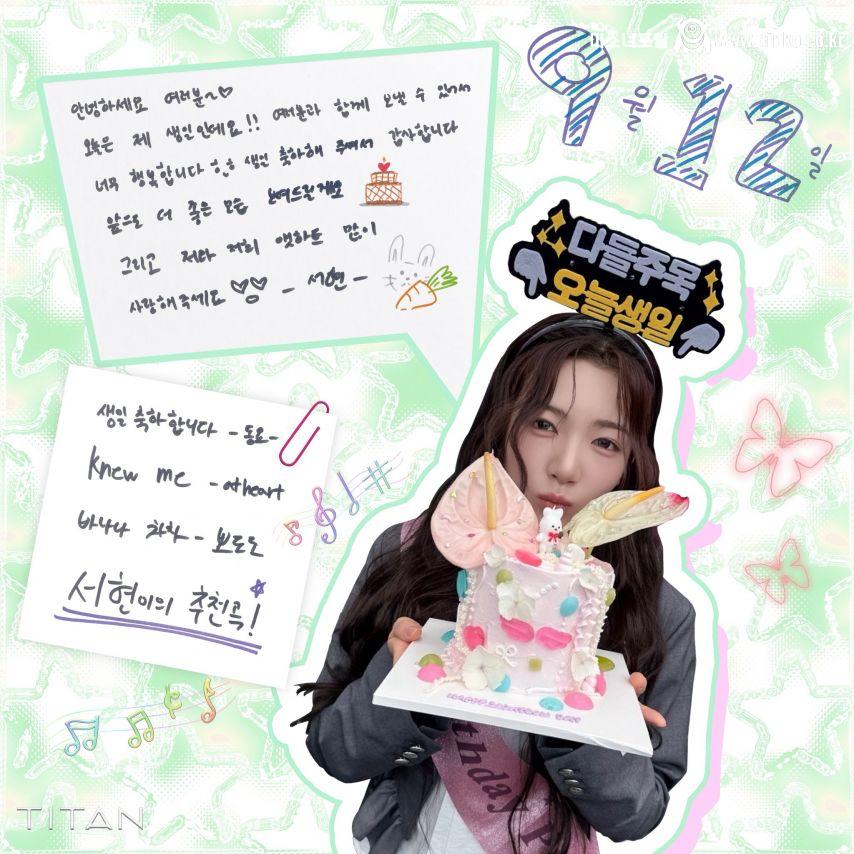 미소녀포털 www.pinko.co.kr
9월 12일
안녕하세요 여러분~♡
오늘은 제 생일인데요!! 여러분과 함께 보낼 수 있어서
너무 행복합니다 생일 축하해 주셔서 감사합니다
앞으로 더 좋은 모습 보여드릴게요
그리고 저와 저희 앳하트 많이
사랑해주세요 - 서현 -
다들주목
오늘생일
생일 축하합니다 - 동요 -
Knew me - atheart
바나나 차차 - 뽀로로
서현이의 추천곡!
TITAN